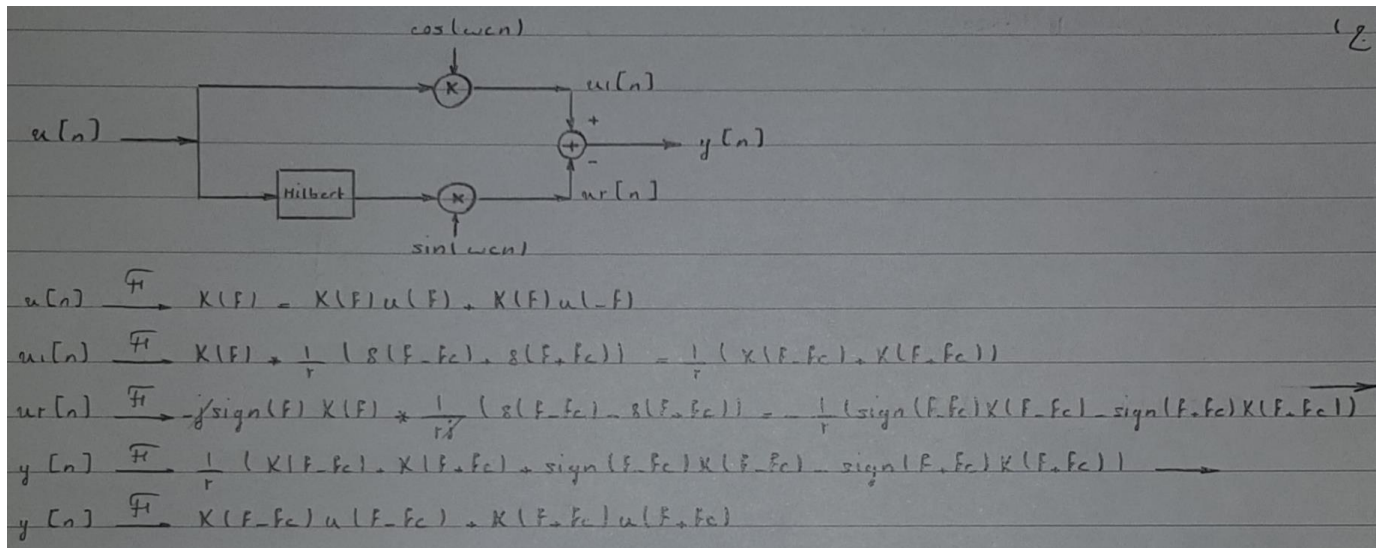 ج)
cos(ωcn)
x[n]
x1[n]
+
y[n]
-
Hilbert
x2[n]
sin(ωcn)
x[n] F→ X(F) = X(F)u(F) + X(F)u(-F)
x1[n] F→ X(F) * 1/۲ (δ(F-Fc) + δ(F+Fc)) = 1/۲ (X(F-Fc) + X(F+Fc))
x۲[n] F→ -j sign(F) X(F) * 1/۲j (δ(F-Fc) - δ(F+Fc)) = -1/۲ (sign(F-Fc)X(F-Fc) - sign(F+Fc)X(F+Fc)) →
y[n] F→ 1/۲ (X(F-Fc) + X(F+Fc) + sign(F-Fc)X(F-Fc) - sign(F+Fc)X(F+Fc)) →
y[n] F→ X(F-Fc)u(F-Fc) + X(F+Fc)u(F+Fc)